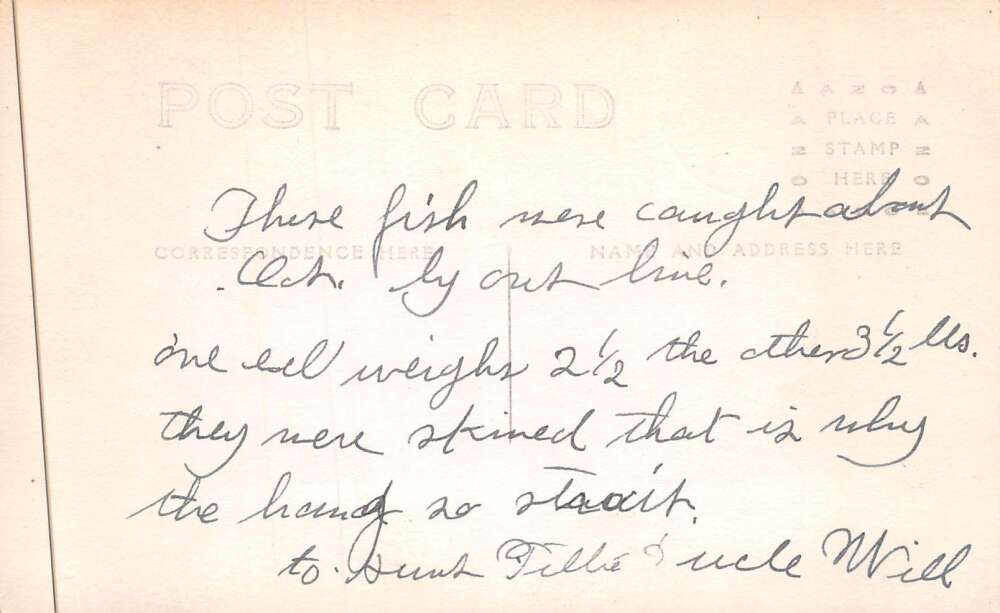 POST CARD
AZO
PLACE
STAMP
HERE
These fish were caught about
CORRESPONDENCE HERE
NAME AND ADDRESS HERE
Oct. by out line.
one eel weighs 2 1/2 the other 3 1/2 lbs.
they were skined that is why
the hang so
to Aunt Tillie & uncle Will